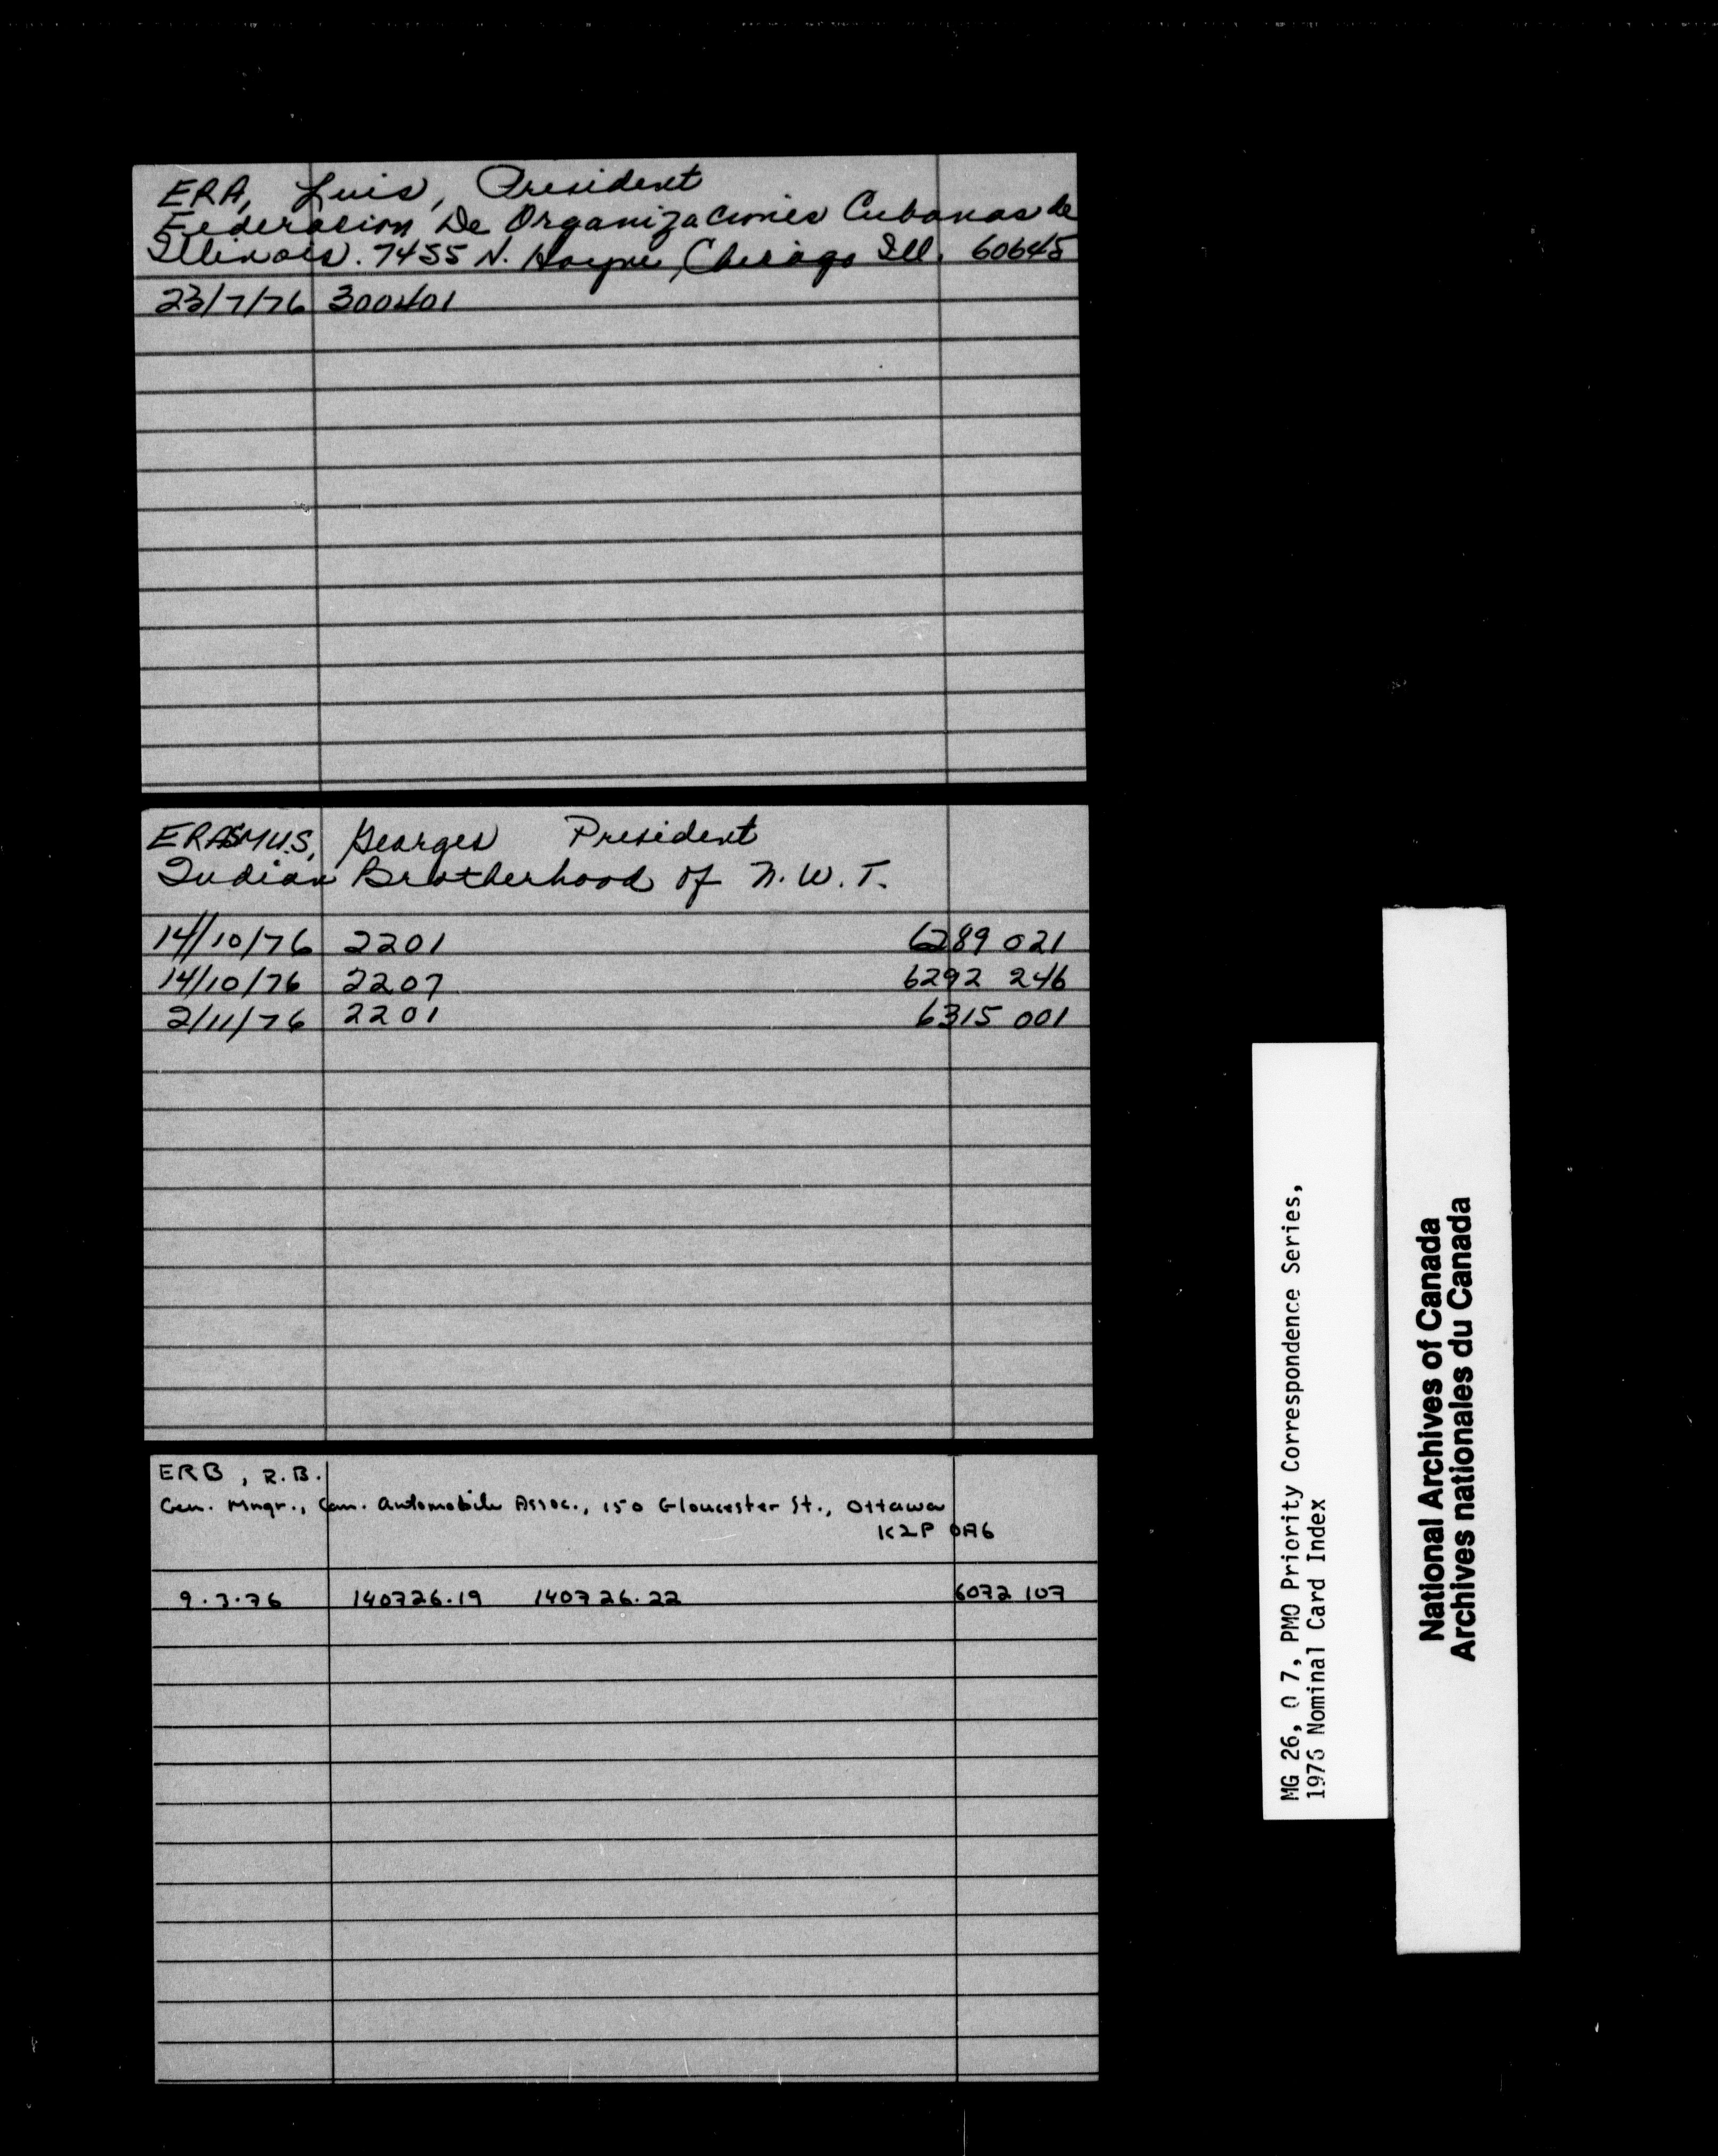 ERA, Luis, President
Federacion De Organizaciones Cubanas de
Illinois. 7455 N. Hoyne, Chicago Ill. 60645
23/7/76 300401
ERASMUS, Georges President
Indian Brotherhood of N.W.T.
14/10/76 2201 6289 021
14/10/76 2207 6292 246
2/11/76 2201 6315 001
ERB, R.B.
Gen. Mngr., Can. Automobile Assoc., 150 Gloucester St., Ottawa
K2P 0A6
9.3.76 140726.19 140726.22 6072 107
MG 26, O 7, PMO Priority Correspondence Series,
1976 Nominal Card Index
National Archives of Canada
Archives nationales du Canada